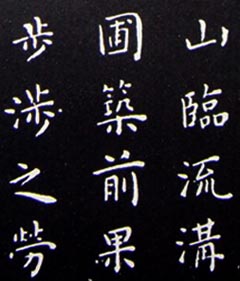 山臨流溝
圃築前果
步涉之勞